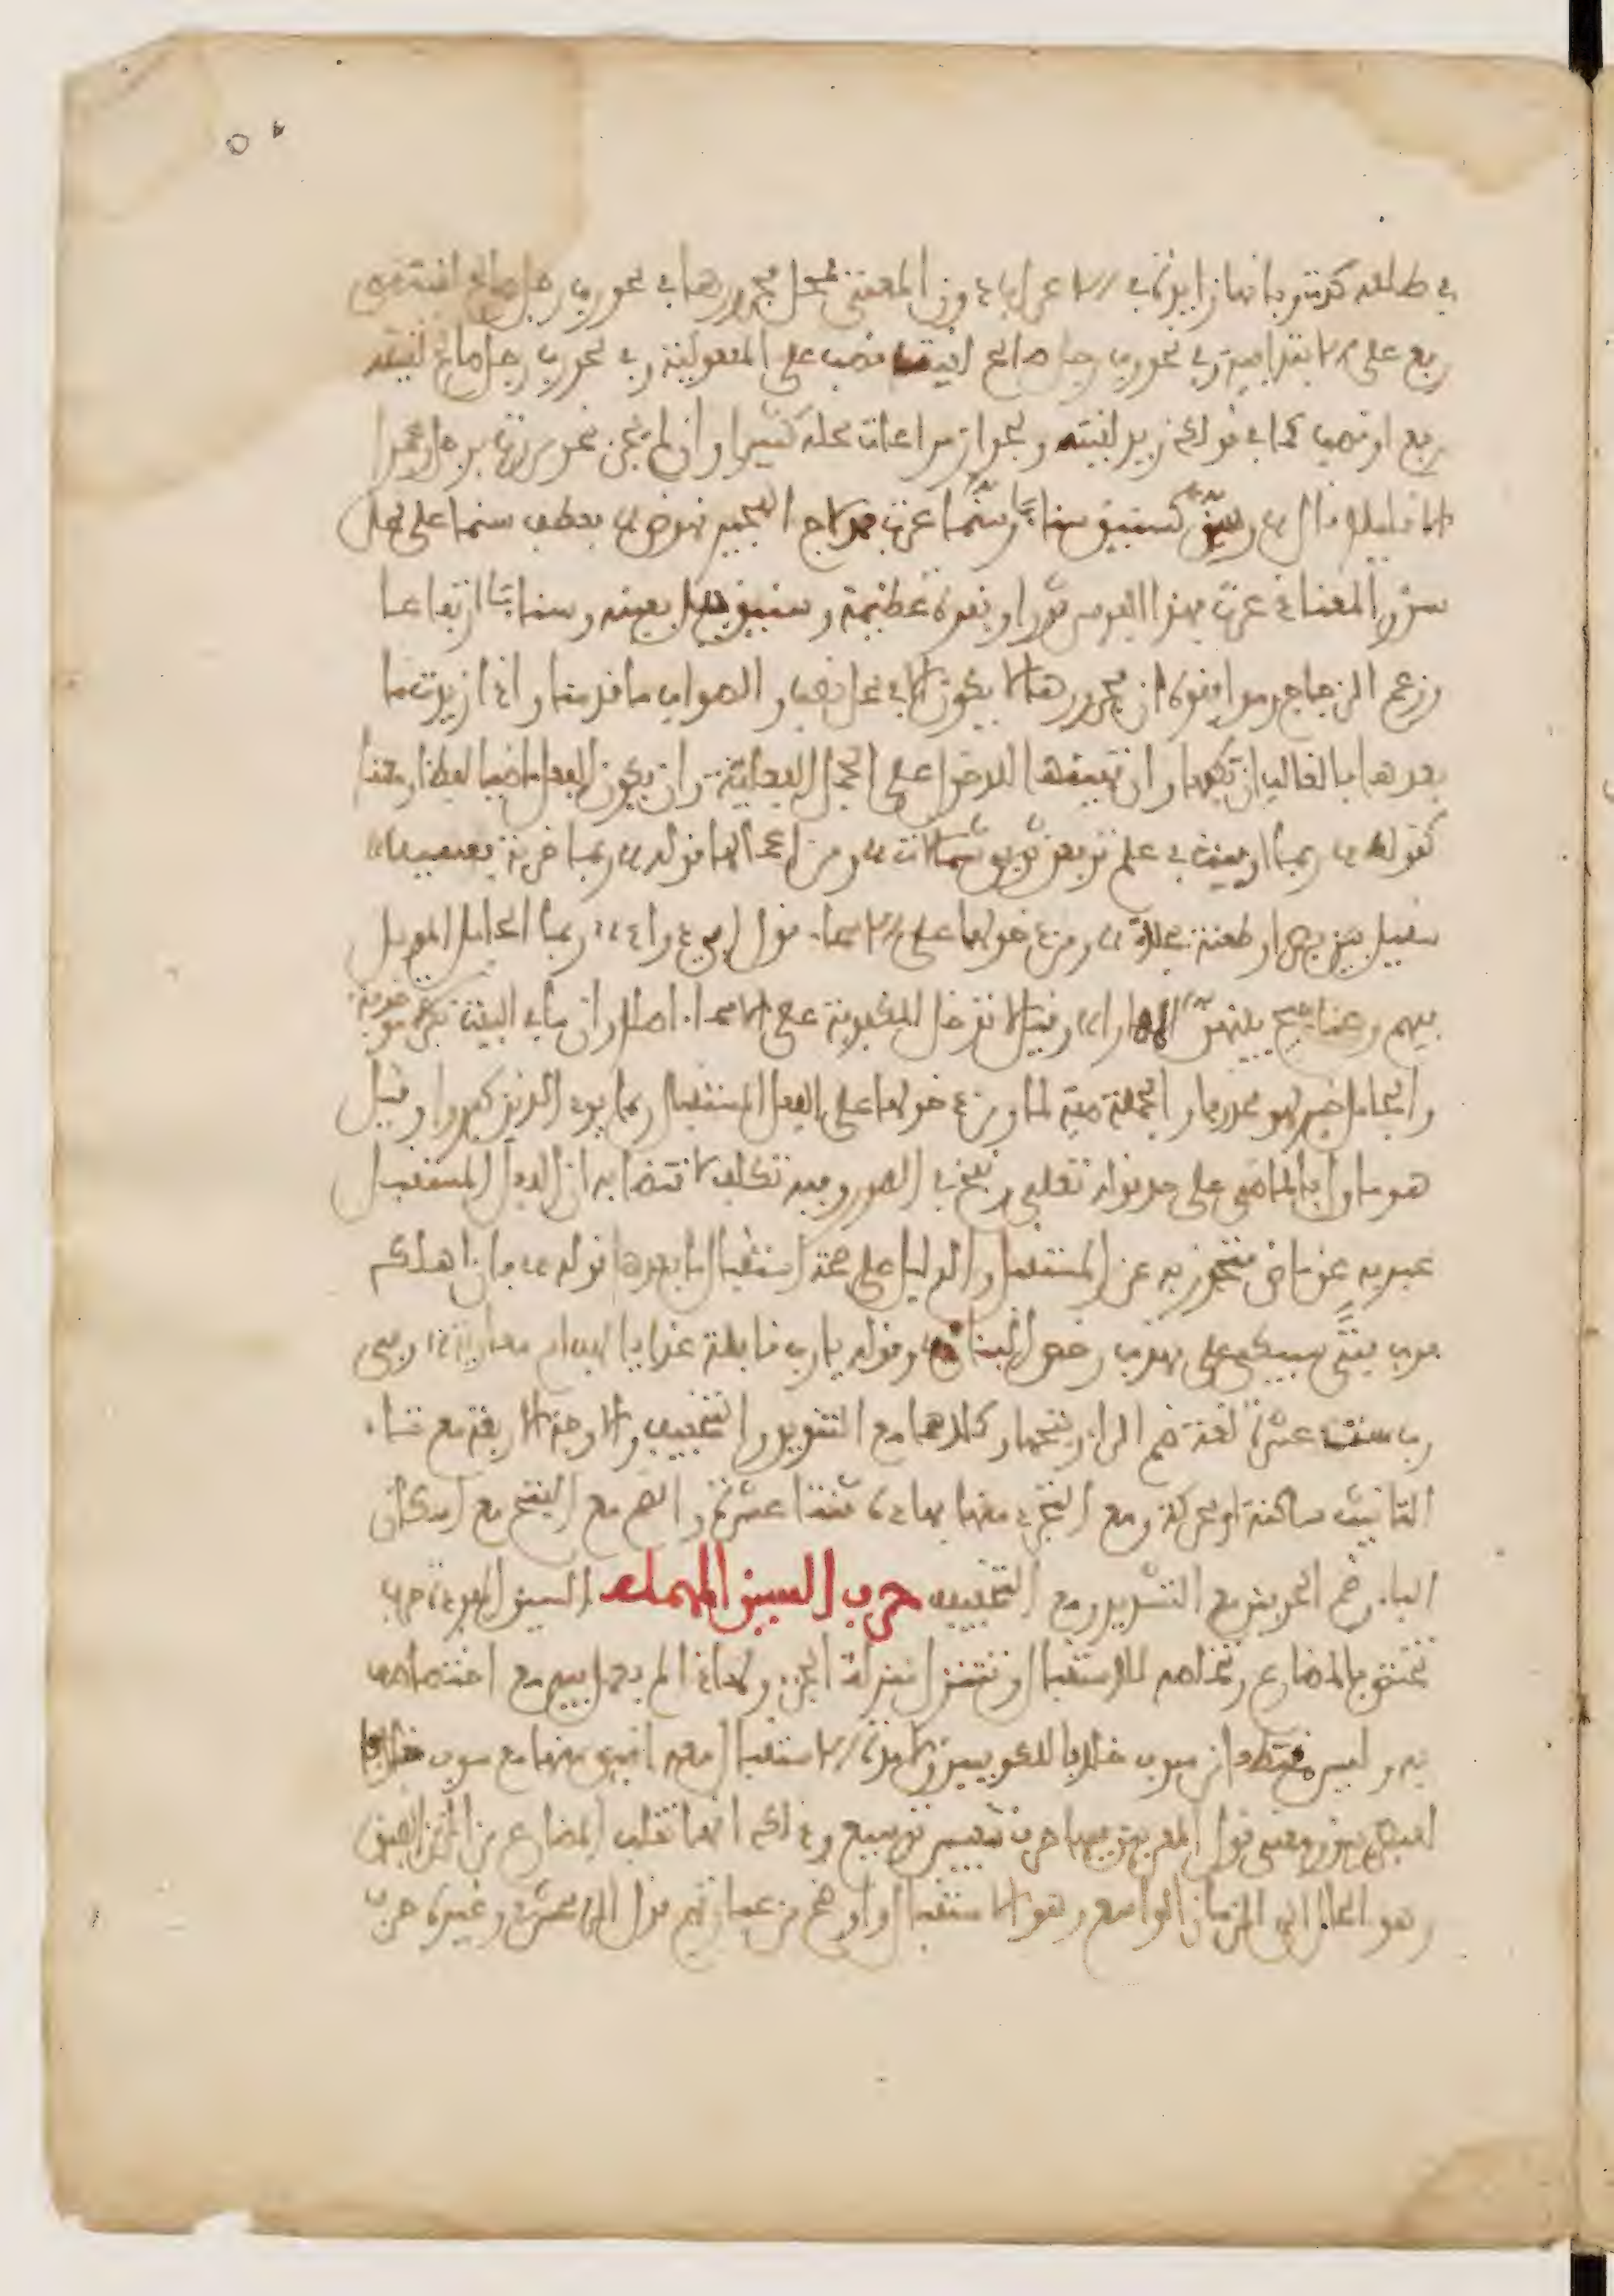 ٥٠
في طللـه كدت وبانها زايدة في الاعراب دون المعنى فمحل مجرورها في نحو رب رجل صالح عندي
رفع على الابتدايية وفي نحو رب رجل صالح لقيت نصب على المفعولية وفي نحو رب رجل صالح لقيته
رفع او نصب كما في قولك زيد لقيته ويجوز مراعات محله كثيرا وان لم يجز نحو مررت بزيد وعمرا
الا قليلا قال وسن كسنيق سناء وسنما ذعرت بمدلاج الهجير نهوض فعطف سنما على محل
سن والمعنى ذعرت بهذا الفرس ثورا وبقرة عظيمة وسنيق جبل بعينه وسناء ارتفاعا
وزعم الزجاج وموافقوه ان مجرورها لا يكون الا في محل نصب والصواب ما قدمنا واذا زيدت ما
بعدها فالغالب ان تكفها وان تهييها للدخول على الجمل الفعلية وان يكون الفعل ماضيا لفظا ومعنى
كقوله ربما اوفيت في علم ترفعن ثوبي شمالات ومن اعمالها قوله ربما ضربة بسيف
صقيل بين بصرى وطعنة نجلاء ومن دخولها على الاسماء قول ابي دواد ربما الجامل المؤبل
فيهم وعناجيج بينهن المهارا وقيل لا تدخل المكفوفة على الاسماء اصلا وان ما في البيت نكرة موصوفة
والجامل خبر لهو محذوفا والجملة صفة لما ومن دخولها على الفعل المستقبل ربما يود الذين كفروا وقيل
هو ماول بالماضي على حد قوله تعالى ونفخ في الصور وفيه تكلف لاقتضايه ان الفعل المستقبل
عبر به عن ماض متجوز به عن المستقبل والدليل على صحة استقبال ما بعدها قوله فان اهلك
فرب فتى سيبكي علي مهذب رخص البنان وقوله يا رب قايلة غدا يا لهف ام معاوية وفي
رب ست عشرة لغة ضم الراء وفتحها وكلاهما مع التشديد والتخفيف والاوجه الاربعة مع تاء
التانيث ساكنة او محركة ومع التجرد منها فهاذه ثنتا عشرة والضم مع الفتح مع اسكان
الباء وضم الحرفين مع التشديد ومع التخفيف حرف السين المهملة السين المفردة حرف
تختص بالمضارع وتخلصه للاستقبال وتتنزل منزلة الجزء ولهاذا لم يعمل فيه مع اختصاصه
به وليس مقتطعا من سوف خلافا للكوفيين ولا مدة الاستقبال معه اضيق منها مع سوف خلافا
للبصريين ومعنى قول المعربين فيها حرف تنفيس توسيع وذلك انها تقلب المضارع من الزمن الضيق
وهو الحال الى الزمان الواسع وهو الاستقبال واوضح من عبارتهم قول الزمخشري وغيره حرف